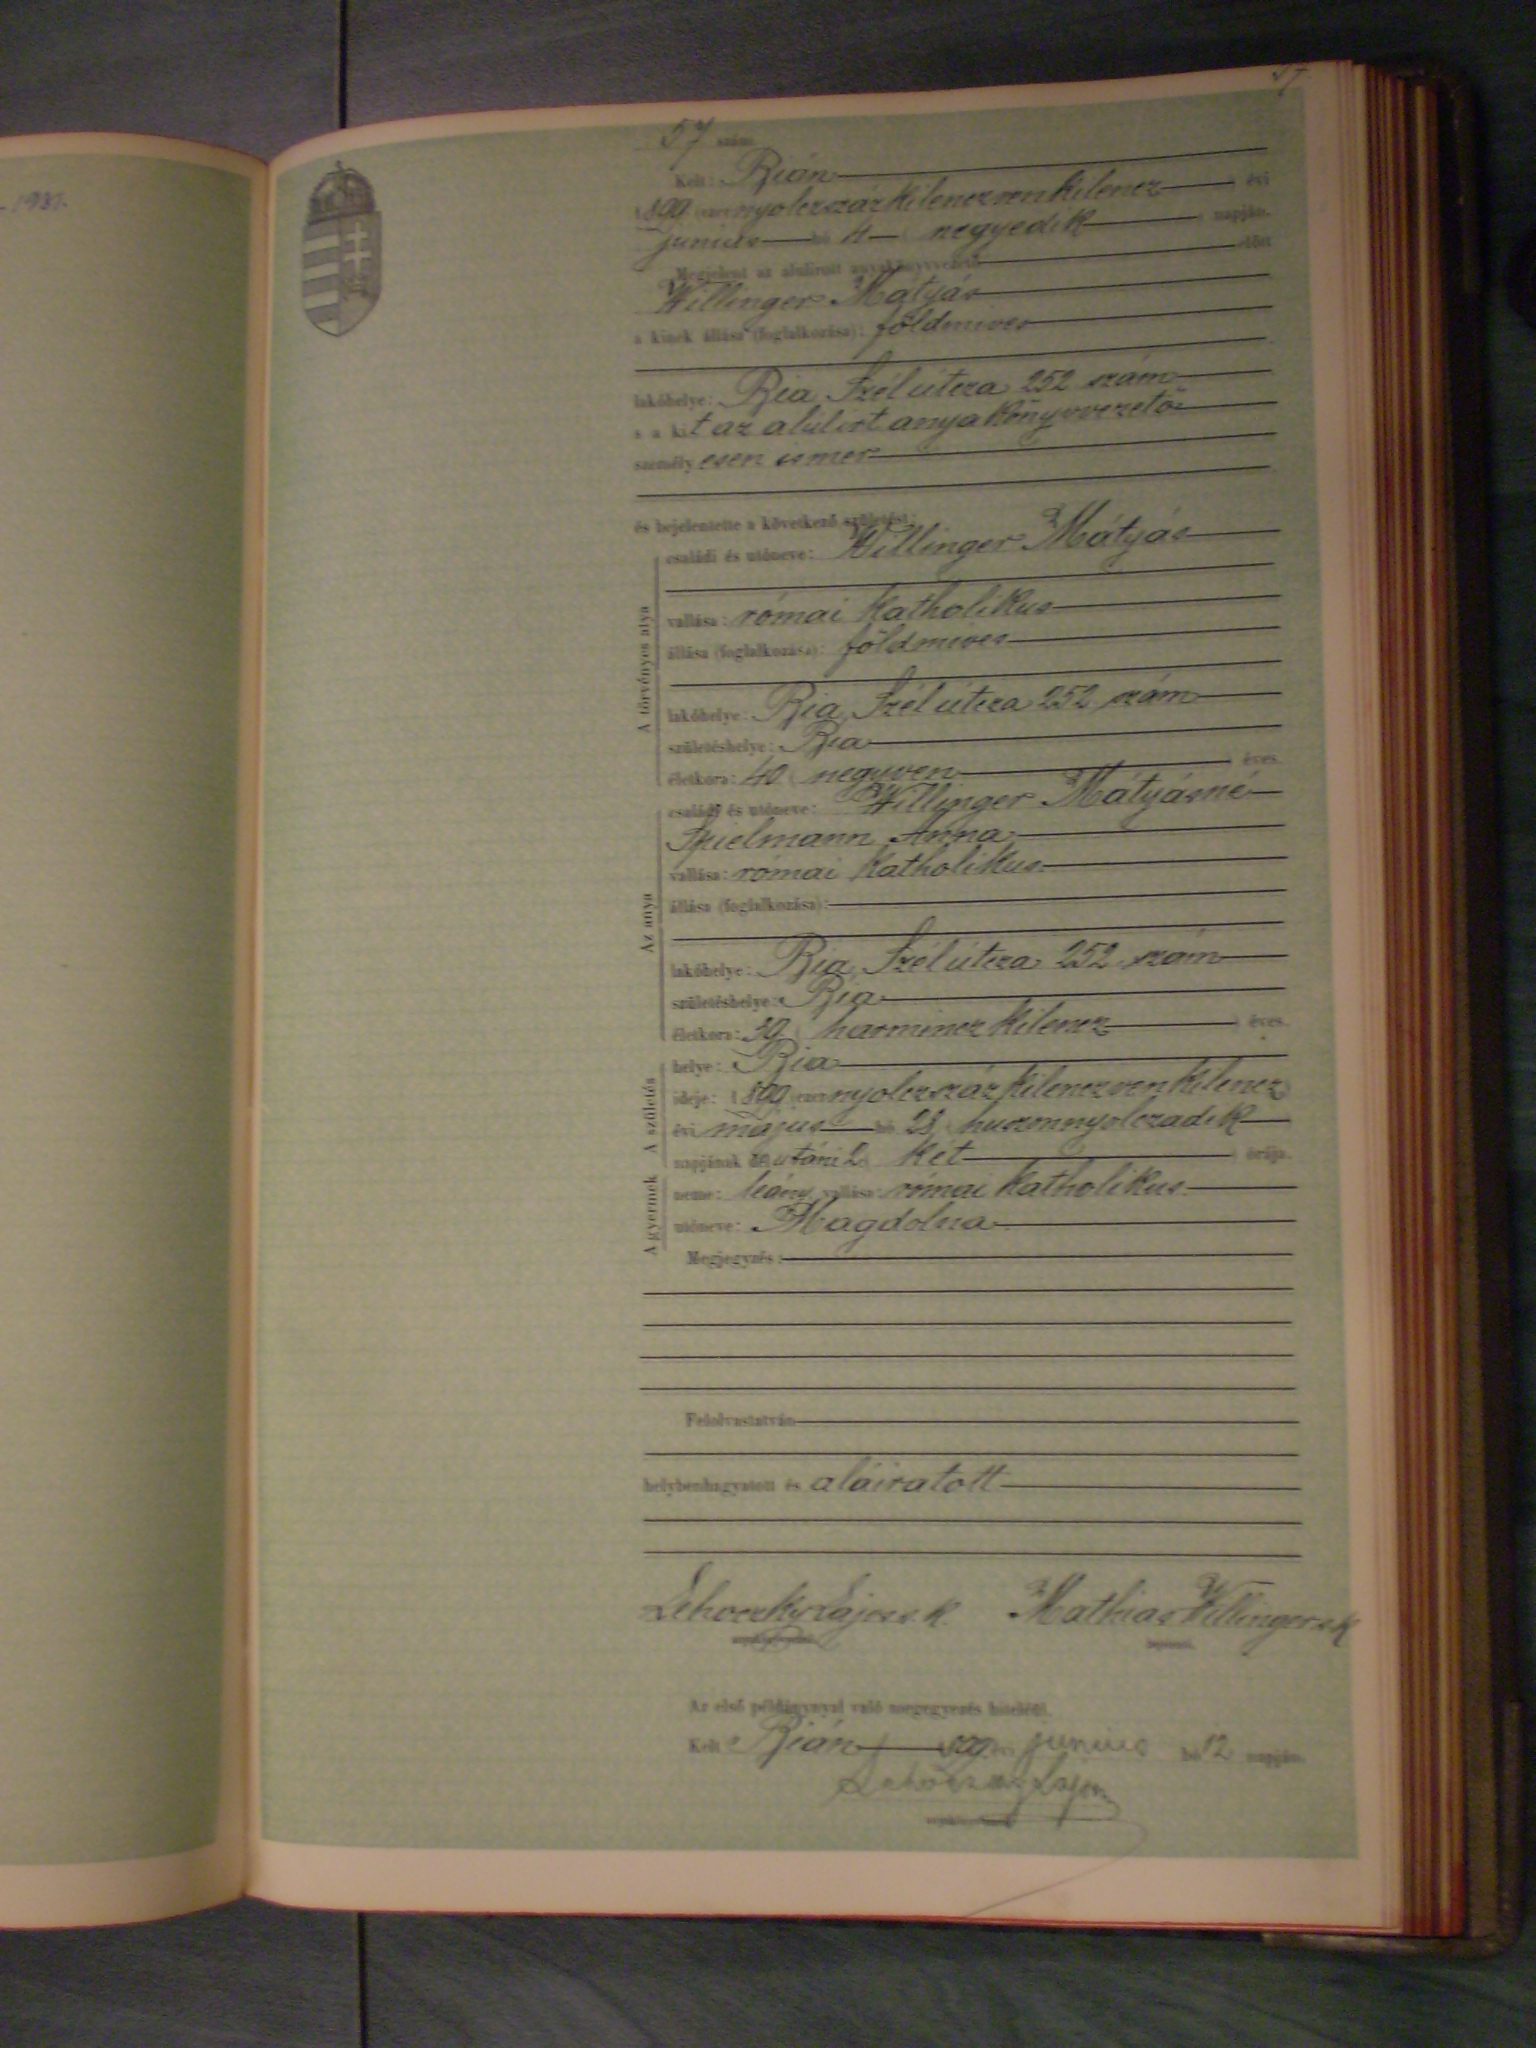 - 1937.
57
57 szám
Kelt: Bián
1899 (ezernyolczszázkilenczvenkilencz) évi
junius hó 4 (negyedik) napján.
Megjelent az alulirott anyakönyvvezető előtt
Willinger Mátyás
a kinek állása (foglalkozása): földmives
lakóhelye: Bia, Szél útcza 252 szám
s a kit az alulirt anyakönyvvezető
személyesen ismer
és bejelentette a következő születést:
A törvényes atya
családi és utóneve: Willinger Mátyás
vallása: római katholikus
állása (foglalkozása): földmives
lakóhelye: Bia, Szél útcza 252 szám
születéshelye: Bia
életkora: 40 (negyven) éves.
Az anya
családi és utóneve: Willinger Mátyásné
Spielmann Anna
vallása: római katholikus
állása (foglalkozása):
lakóhelye: Bia, Szél útcza 252 szám
születéshelye: Bia
életkora: 39 (harmincz kilencz) éves.
A születés
helye: Bia
ideje: 1899 (ezernyolczszázkilenczvenkilencz)
évi május hó 28 (huszonnyolczadik)
napjának délutáni 2 (két) órája.
A gyermek
neme: leány, vallása: római katholikus
utóneve: Magdolna
Megjegyzés:
Felolvastatván
helybenhagyatott és aláiratott
Lehoczky Lajos s. k. Mathias Willinger s k
anyakönyvvezető. bejelentő.
Az első példánynyal való megegyezés hiteléül.
Kelt Bián 899 junius hó 12 napján.
Lehoczky Lajos
anyakönyvvezető.